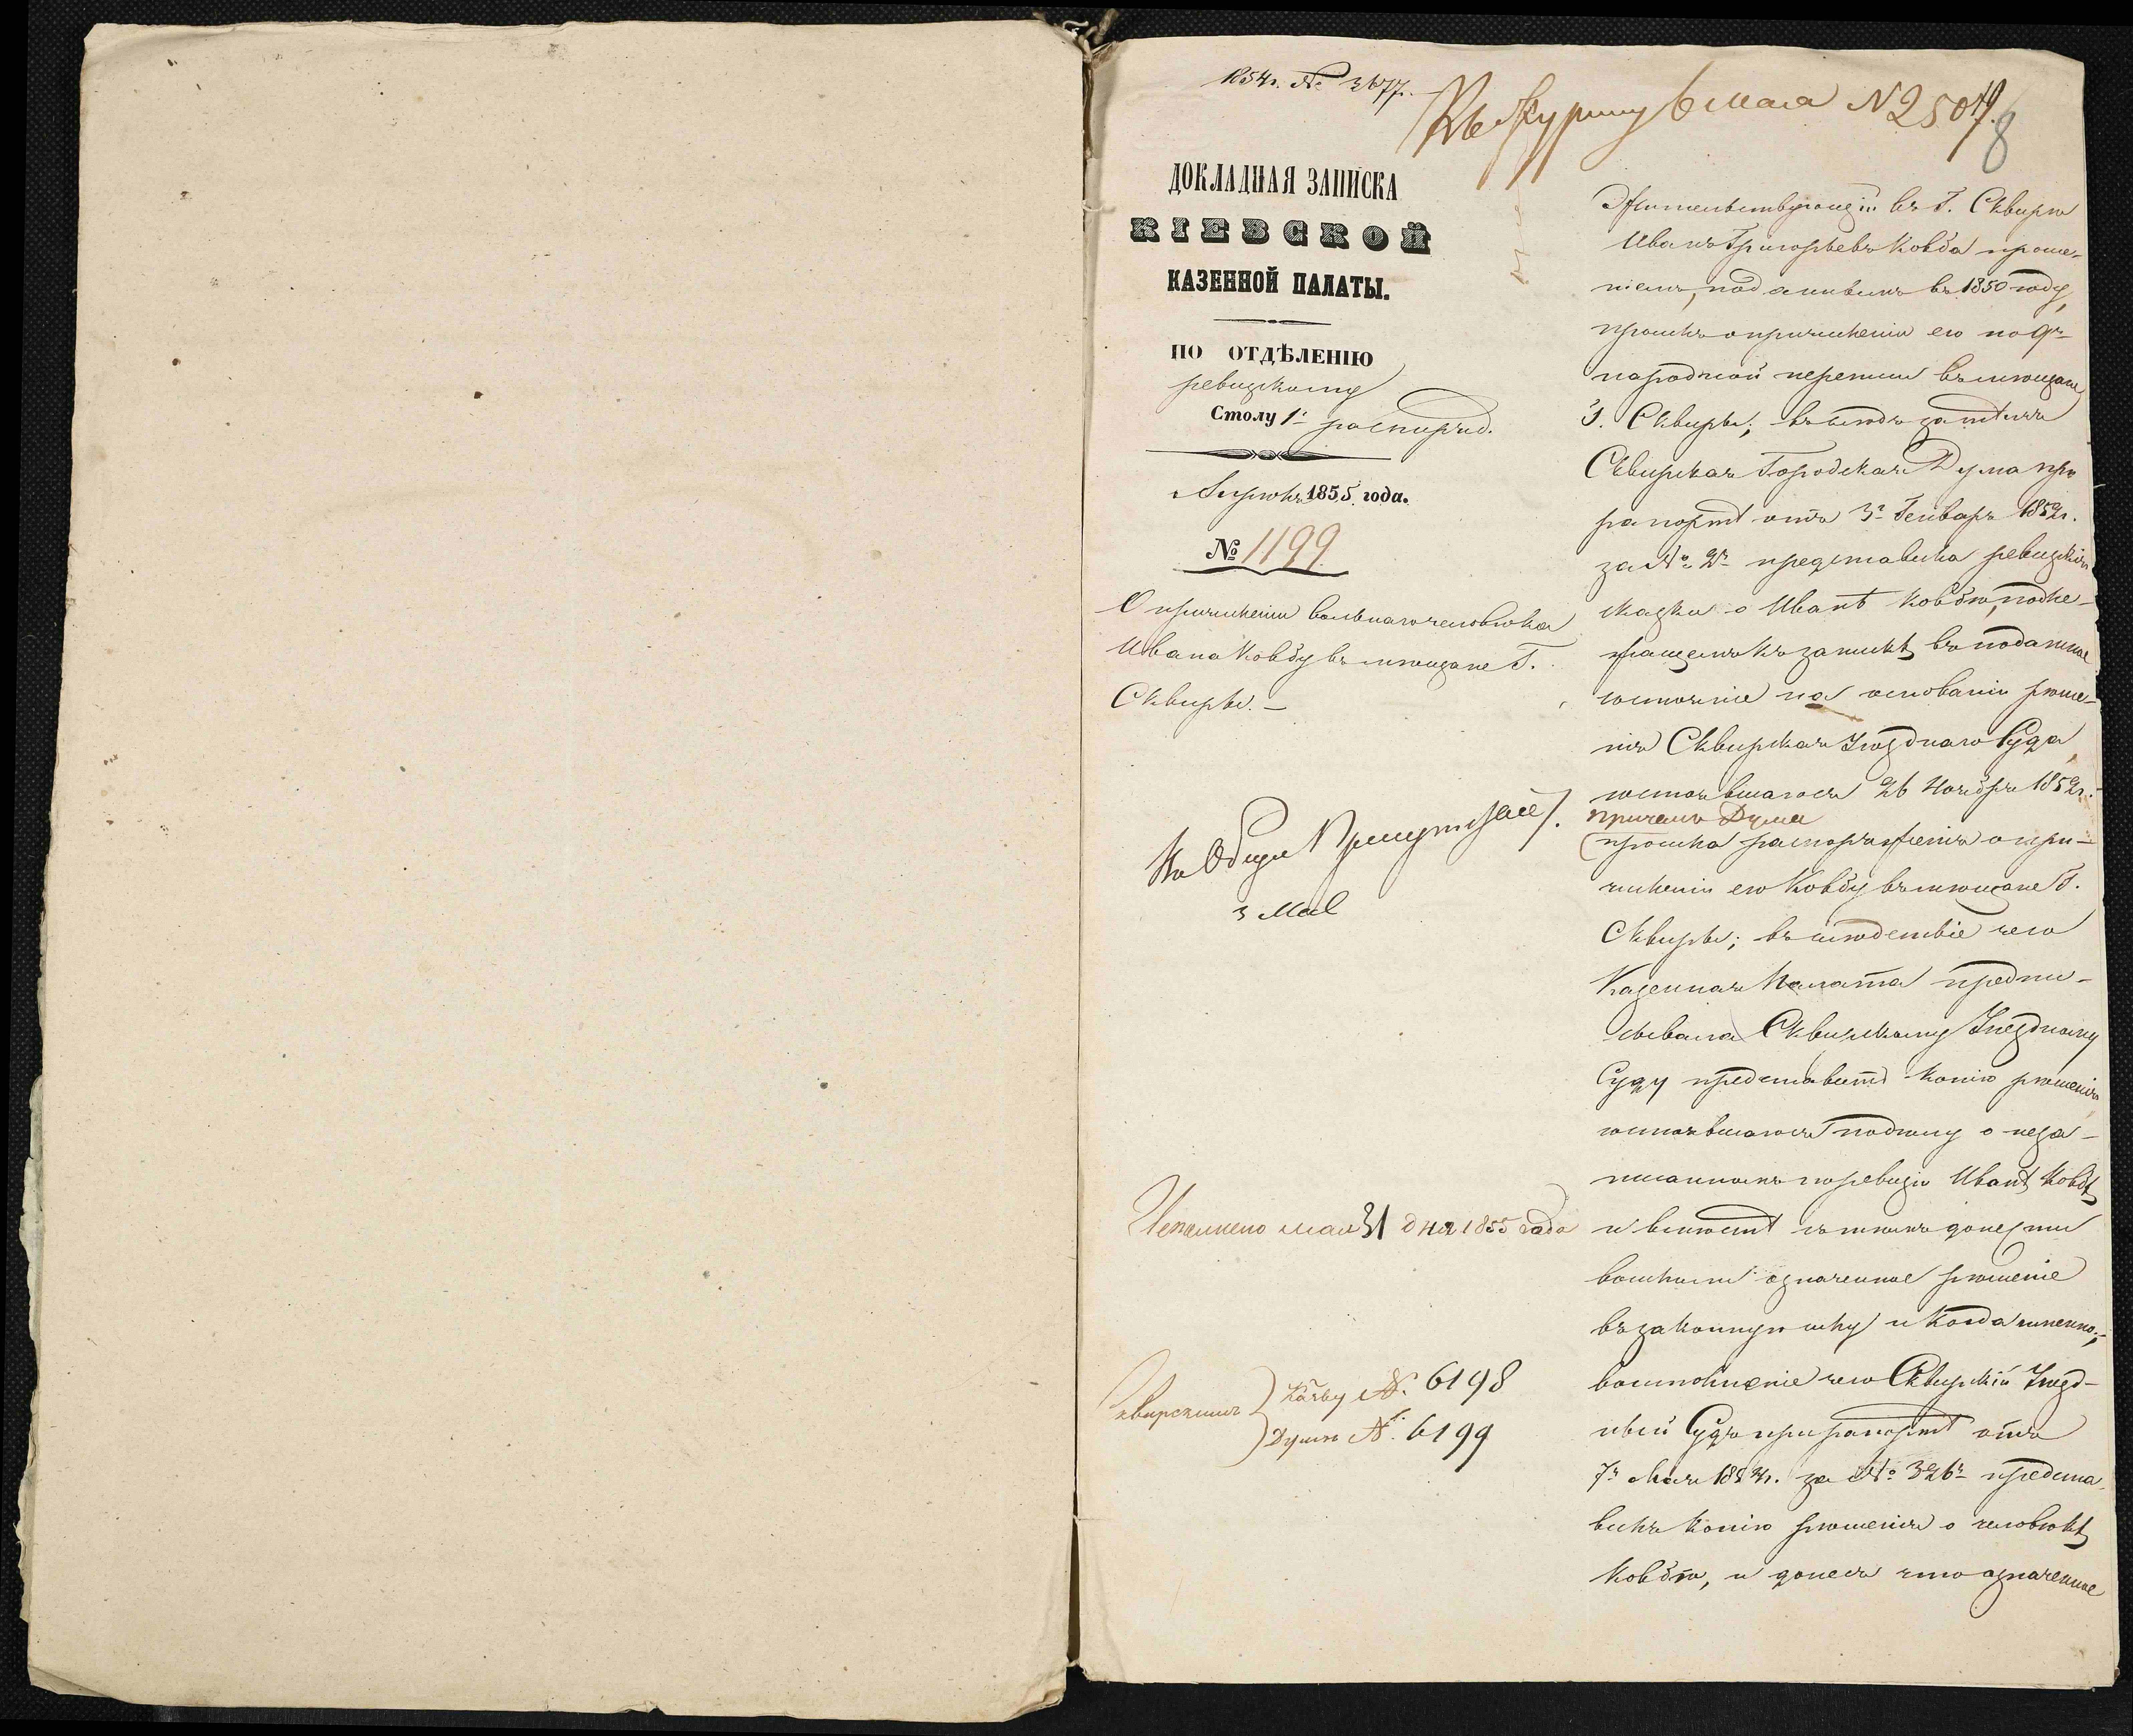 1854г. № 3677.
Къ Журналу 6 мая N 2504
8
ДОКЛАДНАЯ ЗАПИСКА
КІЕВСКОЙ
КАЗЕННОЙ ПАЛАТЫ.
ПО ОТДѢЛЕНІЮ
ревизкому
Столу 1. распоряд.
Апрѣль 1855 года.
№ 1199
О причисленіи вольнаго человѣка
Ивана Ковбу въ мѣщане Г.
Сквиры. —
Въ Общее Присутствіе.
3 Мая
Исполнено мая 31 дня 1855 года
Сквирскимъ
Казву №. 6198
Думѣ №. 6199
Жительствующій въ Г. Сквирѣ
Иванъ Григорьевъ Ковба проше-
ніемъ, подданнымъ въ 1850 году,
просилъ о причисленіи его по 9й
народной переписи въ мѣщане
Г. Сквиры; въ слѣдъ за тѣмъ
Сквирская Городская Дума при
рапортѣ отъ 3го Генваря 1852г.
за №. 2м представила ревизкія
сказки о Иванѣ Ковбѣ, подле-
жащемъ къ запискѣ въ податное
состояніе на основаніи рѣше-
нія Сквирскаго Уѣзднаго Суда,
состоявшагося 26 Ноября 1852г.
причемъ Дума
просила распоряженія о при-
численіи его Ковбу въ мѣщане Г.
Сквиры; въ слѣдствіе чего
Казенная Палата предпи-
сывала Сквирскому Уѣздному
Суду представить копію рѣшенія
состоявшагося по дѣлу о неза-
писанномъ по ревизіи Иванѣ Ковбѣ
и вмѣстѣ съ тѣмъ донести
вошло ли означенное рѣшеніе
въ законную силу и когда именно;
во исполненіе чего Сквирскій Уѣзд-
ный Судъ при рапортѣ отъ
7го Мая 1854г. за № 326м предста-
вилъ копію рѣшенія о человѣкѣ
Ковбѣ, и донесъ что означенное